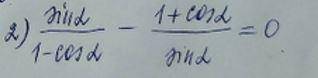 2) sinα/(1-cosα) - (1+cosα)/sinα = 0